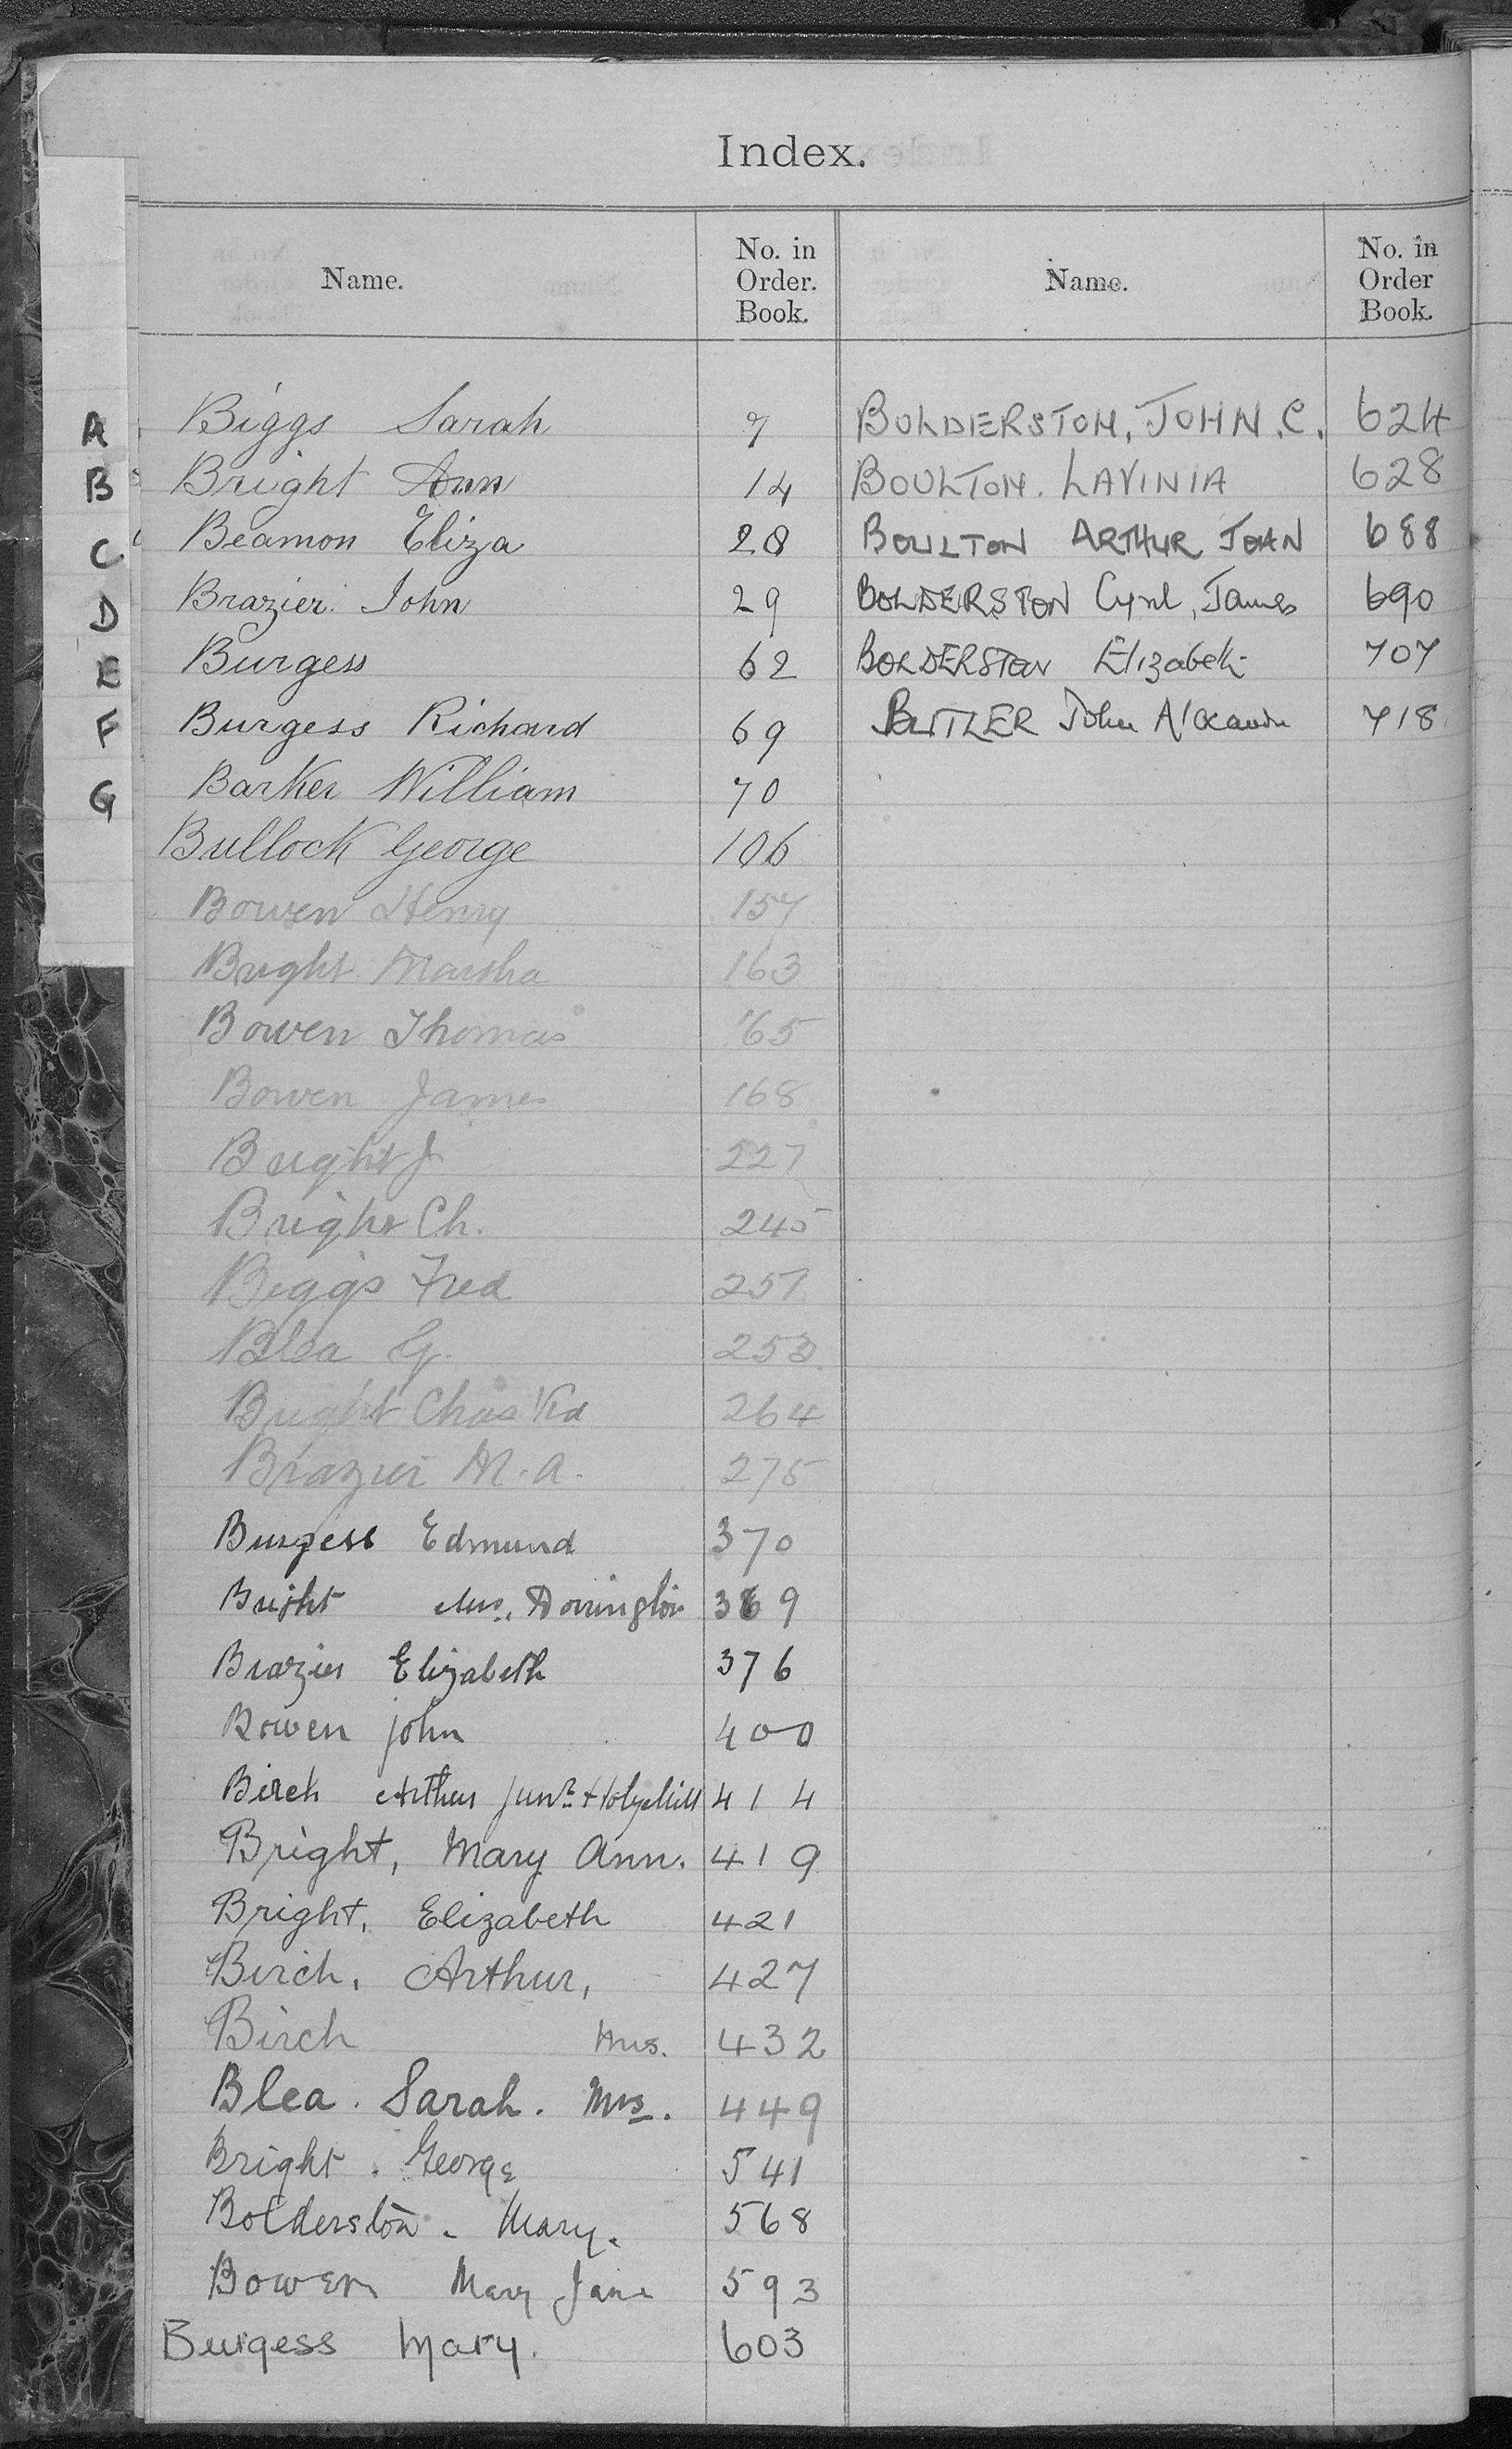 Index.
Name.
No. in
Order.
Book.
Name.
No. in
Order
Book.
A
B
C
D
E
F
G
Biggs Sarah 7
Bright Ann 14
Beamon Eliza 28
Brazier John 29
Burgess 62
Burgess Richard 69
Barker William 70
Bullock George 106
Bowen Henry 157
Bright Marsha 163
Bowen Thomas 165
Bowen James 168
Bright J 227
Bright Ch. 245
Biggs Fred 251
Blea G. 253
Bright Chas 264
Brazier M. A. 275
Burgess Edmund 370
Bright Mrs. Dorrington 369
Brazier Elizabeth 376
Bowen John 400
Birch Arthur Junr. 414
Bright, Mary Ann. 419
Bright, Elizabeth 421
Birch, Arthur, 427
Birch Mrs. 432
Blea. Sarah. Mrs. 449
Bright. George 541
Bolderston. Mary. 568
Bowen Mary Jane 593
Burgess Mary. 603
BOLDERSTON, JOHN. C. 624
BOULTON. LAVINIA 628
BOULTON ARTHUR JOHN 688
BOLDERSTON Cyril, James 690
BOLDERSTON Elizabeth 707
BUTLER John Alexander 718